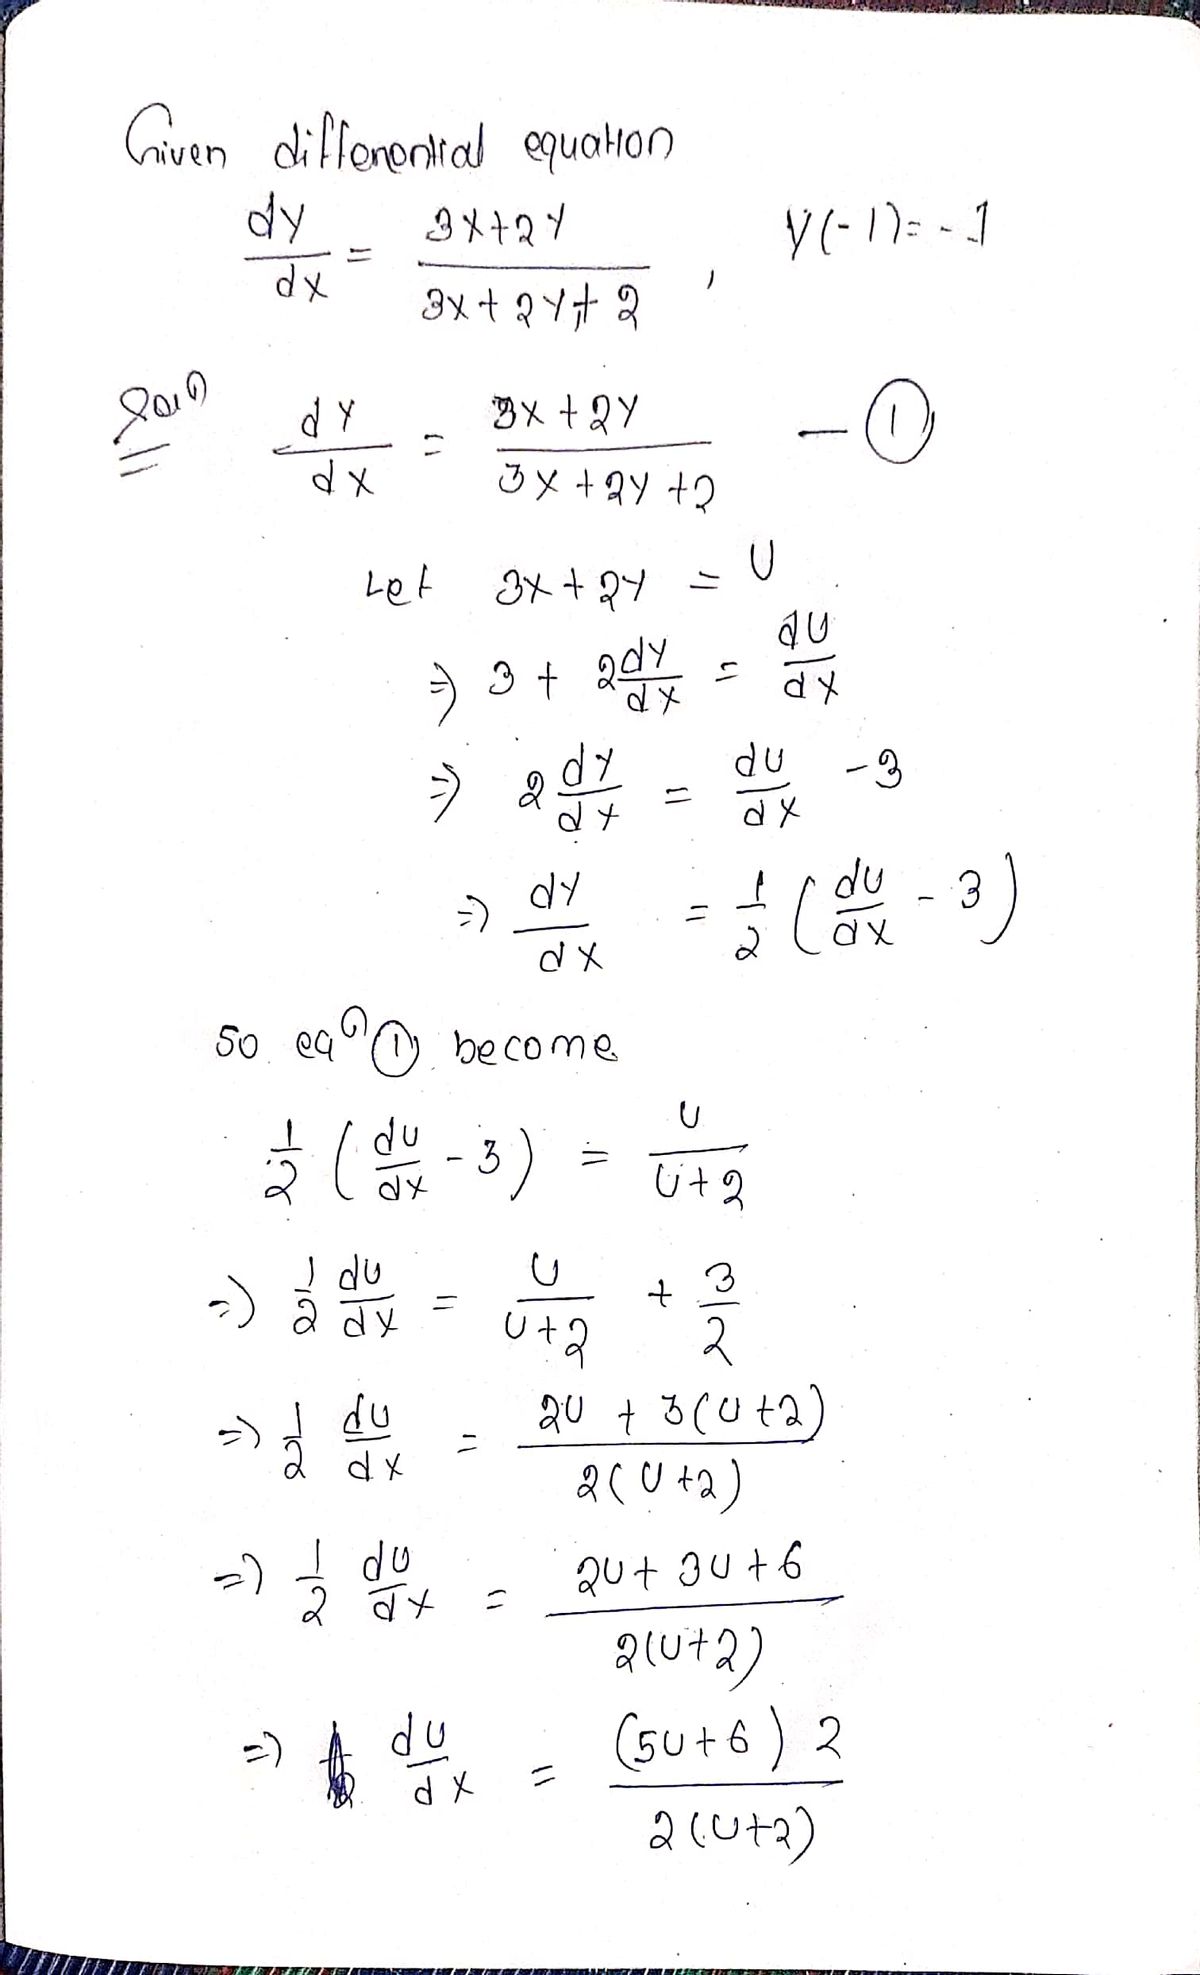 Given differential equation
dy/dx = 3x+2y / 3x+2y+2 , y(-1)= -1
Soln dy/dx = 3x+2y / 3x+2y+2 — ①
Let 3x+2y = U
⇒ 3 + 2dy/dx = dU/dx
⇒ 2 dy/dx = dU/dx -3
⇒ dy/dx = 1/2 ( dU/dx - 3 )
So eqn ① become
1/2 ( dU/dx - 3 ) = U / U+2
⇒ 1/2 dU/dx = U / U+2 + 3/2
⇒ 1/2 dU/dx = 2U + 3(U+2) / 2(U+2)
⇒ 1/2 dU/dx = 2U+3U+6 / 2(U+2)
⇒ dU/dx = (5U+6) 2 / 2(U+2)